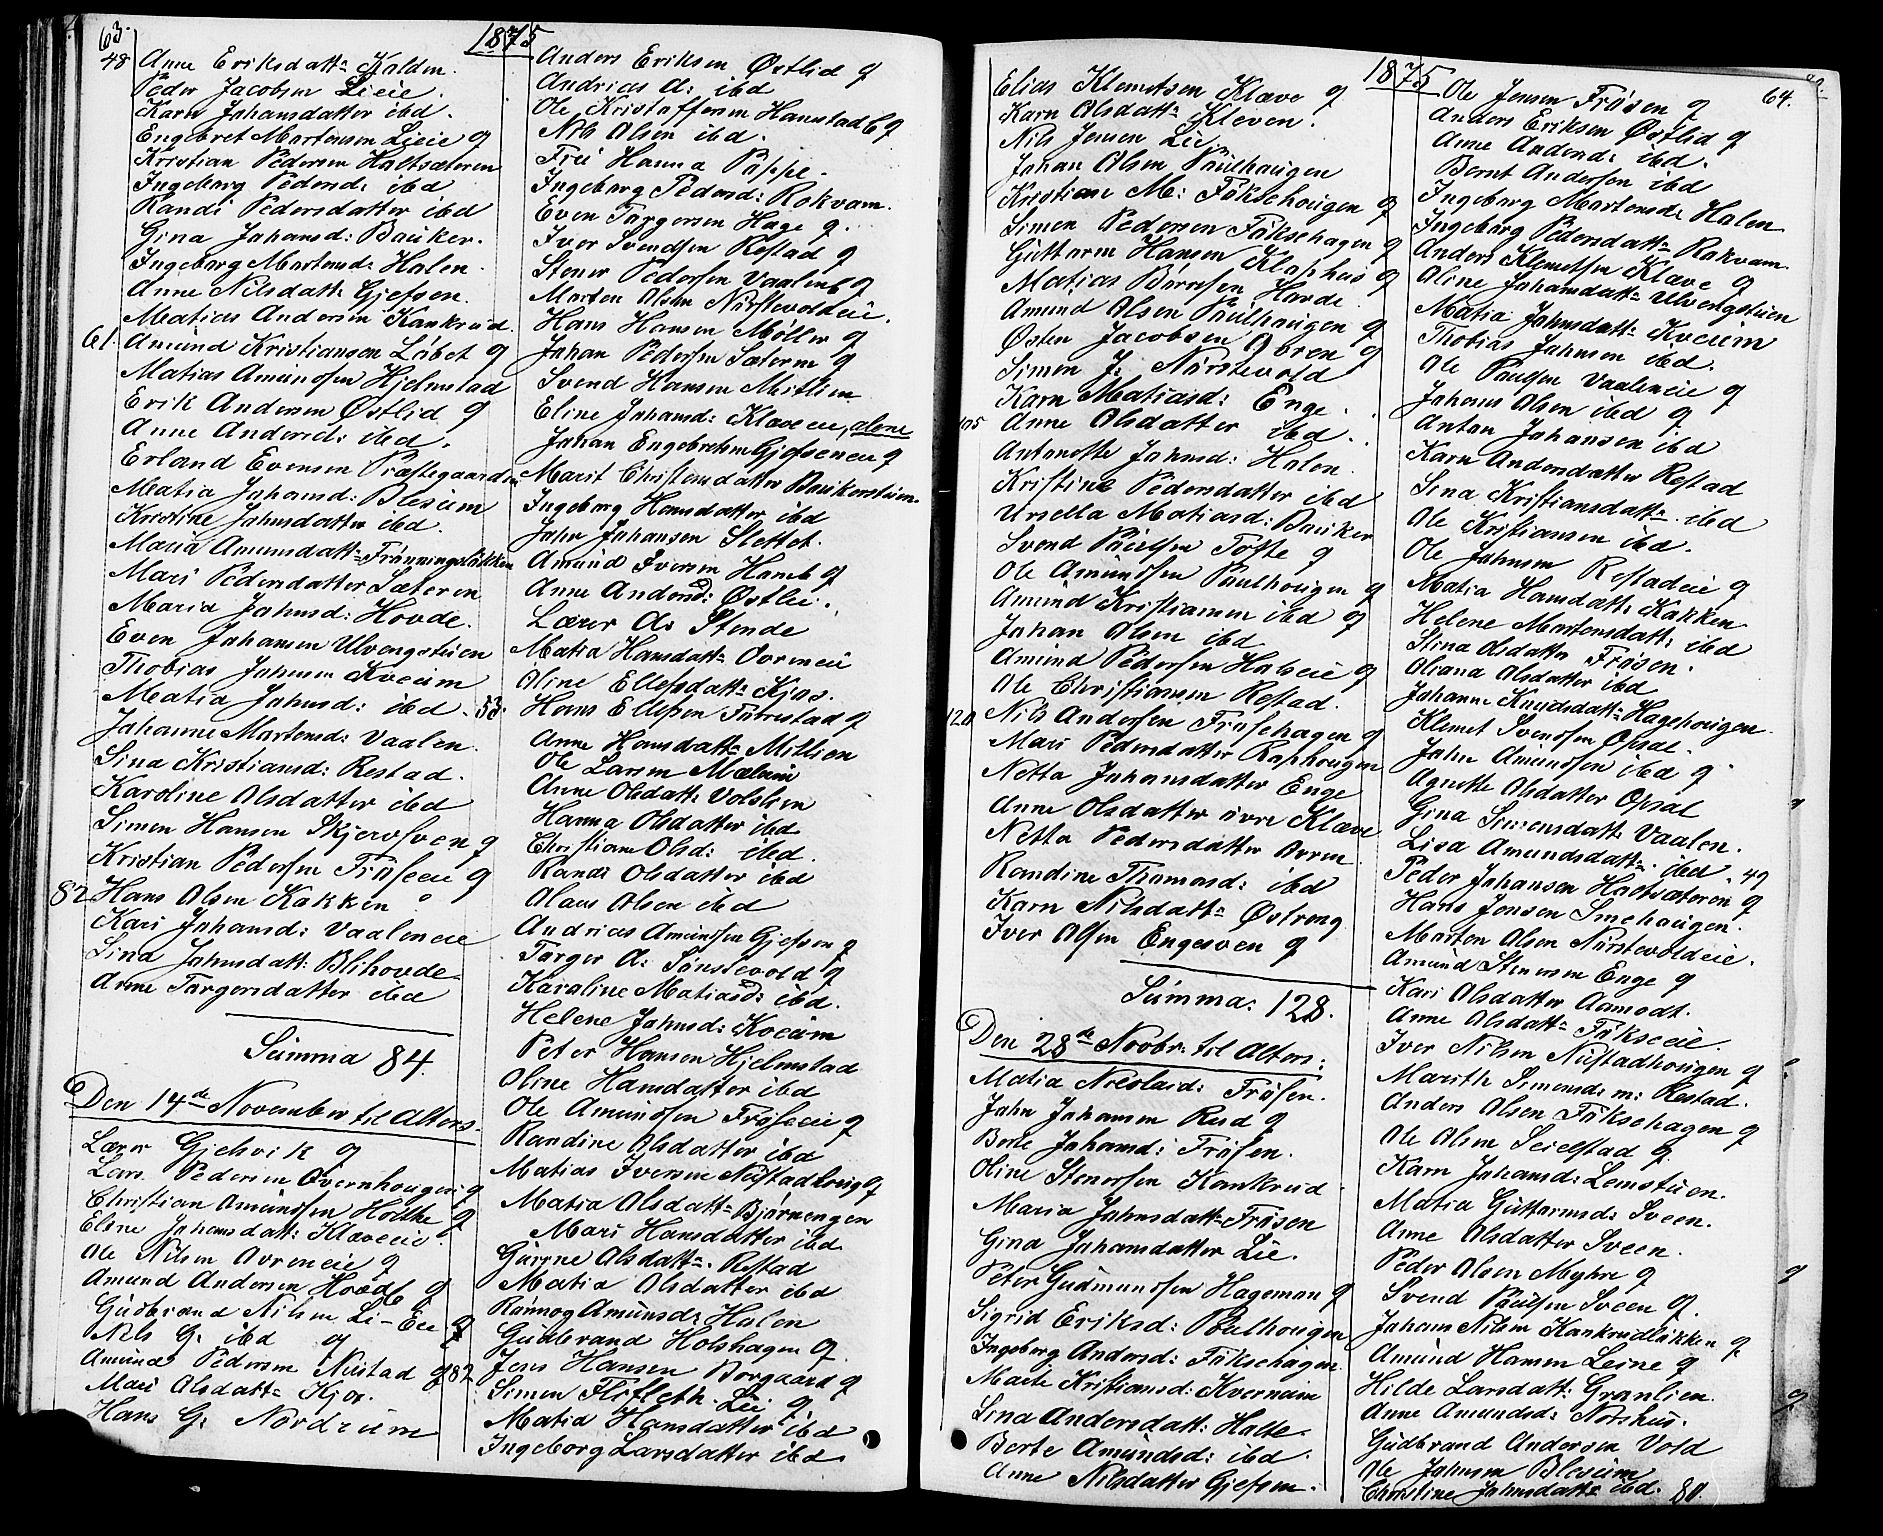 63.
1875
48 Anne Eriksdatt: Kalden.
Peder Jacobsen Lieie.
Karn Johansdatter ibd.
Engebret Martenson Lieie g
Kristian Pedersen Haltsæteren
Ingebarg Pedersd: ibd
Randi Pedersdatter ibd
Gina Johansd: Bauker.
Ingebarg Martensd: Halen.
Anne Nilsdatt: Gjefsen.
Matias Andersen Kankrud.
61. Amund Kristiansen Løbet g
Matias Amundsen Hjelmstad
Erik Andersen Østlid g
Anne Andersd: ibd.
Erland Evensen Præstegaarden
Matia Johansd: Blesum
Kristine Johnsdatter ibd.
Maria Amunsdatt: Frønningsløkken
Mari Pedersdatter Sæteren
Maria Johnsd: Hovde.
Even Johansen Ulvengstuen
Thobias Johnsen Kveum
Matia Johnsd: ibd.
Johanne Martensd: Vaalen.
Sina Kristiansd: Restad.
Karoline Olsdatter ibd
Simen Hansen Skjervsven g
Kristian Pedersen Frøseie g
82 Hans Olsen Kakken
Kari Johansd: Vaaleneie
Sina Johnsdatt: Blihovde
Anne Targersdatter ibd
Summa 84.
Den 14de November til Alters.
Lærer Gjelsvik g
Lars Pedersen Overnhougen g
Christian Amundsen Holthe g
Eline Johansdatt: Klæveeie.
Ole Nilsen Ovreneie g
Amund Andersen Hovde g
Gudbrand Nilsen Li-Eie g
Nels G. ibd g
Amund Pedersen Nustad g
Mari Olsdatt: Kjos.
Hans G. Nordrum
Anders Eriksen Østlid g
Andrias A: ibd
Ole Kristoffersen Hamstad g
Nils Olsen ibd.
Frü Hanna Pappe.
Ingebarg Pedersd: Rokvam.
Even Targersen Hage g.
Iver Svendsen Restad g
Stener Pedersen Vaalen g
Marten Olsen Nørstevoldeie.
Hans Hansen Møller g
Johan Pedersen Sæteren g
Svend Hansen Mitlien
Eline Johansd: Klæveeie, alene
Johan Engebretsen Gjefseneie g
Marit Christensdatter Baukerstuen.
Ingeborg Hansdatter ibd
John Johansen Slettet.
Amund Iversen Hamb g
Anne Andersd: Østlie.
Lærer O: Stende
Matia Hansdatt: Ovrneie
Oline Ellefsdatt: Kjos.
53. Hans Ellefsen Furrestad g
Anne Hansdatt: Millien
Ole Larsen Mælum
Anne Olsdatt: Volslien
Hanna Olsdatter ibd
Christiane Olsd: ibd.
Randi Olsdatter ibd
Olaus Olsen ibd
Andrias Amundsen Gjefsen g
Targer A: Sønstevold g
Karaline Matiasd: ibd.
Helene Johnsd: Kveum
Peter Hansen Hjelmstad
Oline Hansdatter ibd
Ole Amundsen Frøseeie g
Randine Olsdatter ibd
Matias Iversen Nustadhoug g
Matia Olsdatt: Bjørnengen
Mari Hansdatter ibd
Gurine Olsdatt: Restad
Matia Olsdatter ibd
Rønnog Amunsd: Halen
Gudbrand Holshagen g.
82 Jens Hansen Borgaard g
Simen Flifleth Lie g
Matia Hansdatter ibd
Ingeborg Larsdatter ibd.
64.
1875
Elias Klemetsen Klæve g
Karn Olsdatt: Kleven.
Nils Jensen Lie
Johan Olsen Paulhaugen
Kristian M: Føksehougen g
Simen Pedersen Føksehagen g
Guttorm Hansen Klaphus g
Matias Børresen Harde
Amund Olsen Paulhaugen g
Østen Jacobsen Øvren g
Simen J: Nørstevold
Karn Matiasd: Enge.
105 Anne Olsdatter ibd.
Antonette Johnsd: Halen.
Kristine Pedersdatter ibd
Ursella Matiasd: Bauker
Svend Paulsen Tofte g
Ole Amundsen Paulhougen g
Amund Kristiansen ibd g
Johan Olsen ibd
Amund Pedersen Halseie g
Ole Christiansen Restad.
120 Nils Andersen Frøsehagen g
Mari Pedersdatter Raphougen
Netta Johansdatter Enge
Anne Olsdatter øvre Klæve
Netta Pedersdatter Ovren
Randine Thomasd: ibd
Karn Nilsdatt: Østreng
Iver Olsen Engesven g
Summa: 128.
Den 28de Novbr: til Alters:
Matia Nicolaid: Frøsen.
John Johansen Rud g
Berte Johansd: Frøsen.
Oline Stenersen Kankrud
Maria Johnsdatt: Frøsen
Gina Johansdatter Lie.
Peter Gudmundsen Hageman g
Sigrid Eriksd: Poulhougen
Ingeborg Andersd: Føksehagen.
Marte Kristiansd: Kvernum
Sina Andersdatt: Halte.
Berte Amundsd: ibd.
Anne Nilsdatter Gjefsen.
Ole Jensen Frøsen g
Anders Eriksen Østlid g
Anne Andersd: ibd.
Bernt Andersen ibd
Ingebarg Martensd: Halen
Ingebarg Pedersdatt: Rokvam
Anders Klemetsen Klæve g
Oline Johansdatt: Ulvengstuen
Matia Johnsdatt: Kveum
Thobias Johnsen ibd.
Ole Paulsen Vaaleneie g
Johans Olsen ibd g
Anton Johansen ibd
Karn Andersdatter Restad
Sina Kristiansdatt: ibd
Ole Kristiansen ibd.
Ole Johnsen Restadeie g
Matia Hansdatt: Kakken
Helene Martensdatt: ibd
Stina Olsdatter Frøsen.
Oliana Olsdatter ibd
Johanne Knudsdatt: Hagehougen.
Klemet Svendsen Opsal.
John Amundsen ibd g
Agnette Olsdatter Opsal
Gina Simensdatt: Vaalen.
Lisa Amundsdatt: ibd. 49
Peder Johansen Haltsæteren g
Hans Jensen Smehaugen.
Marten Olsen Nørstevoldeie.
Amund Stenersen Enge g
Kari Olsdatter Aamodt.
Anne Olsdatt: Fökseeie.
Iver Nilsen Nustadhougen g
Marith Simensd: m: Restad.
Anders Olsen Føksehagen g
Ole Olsen Seielstad g
Karn Johansd: Lemstuen.
Matia Guttormsd: Sveen.
Anne Olsdatter Sveen.
Peder Olsen Myhre g
Svend Paulsen Sveen g.
Johans Nilsen Kankrudløkken g
Amund Hansen Leine g
Hilde Larsdatt: Granlien.
Anne Amundsd: Norshus.
Gudbrand Andersen Vold
Ole Johnsen Blesum
Christine Johnsdatt: ibd. 80.